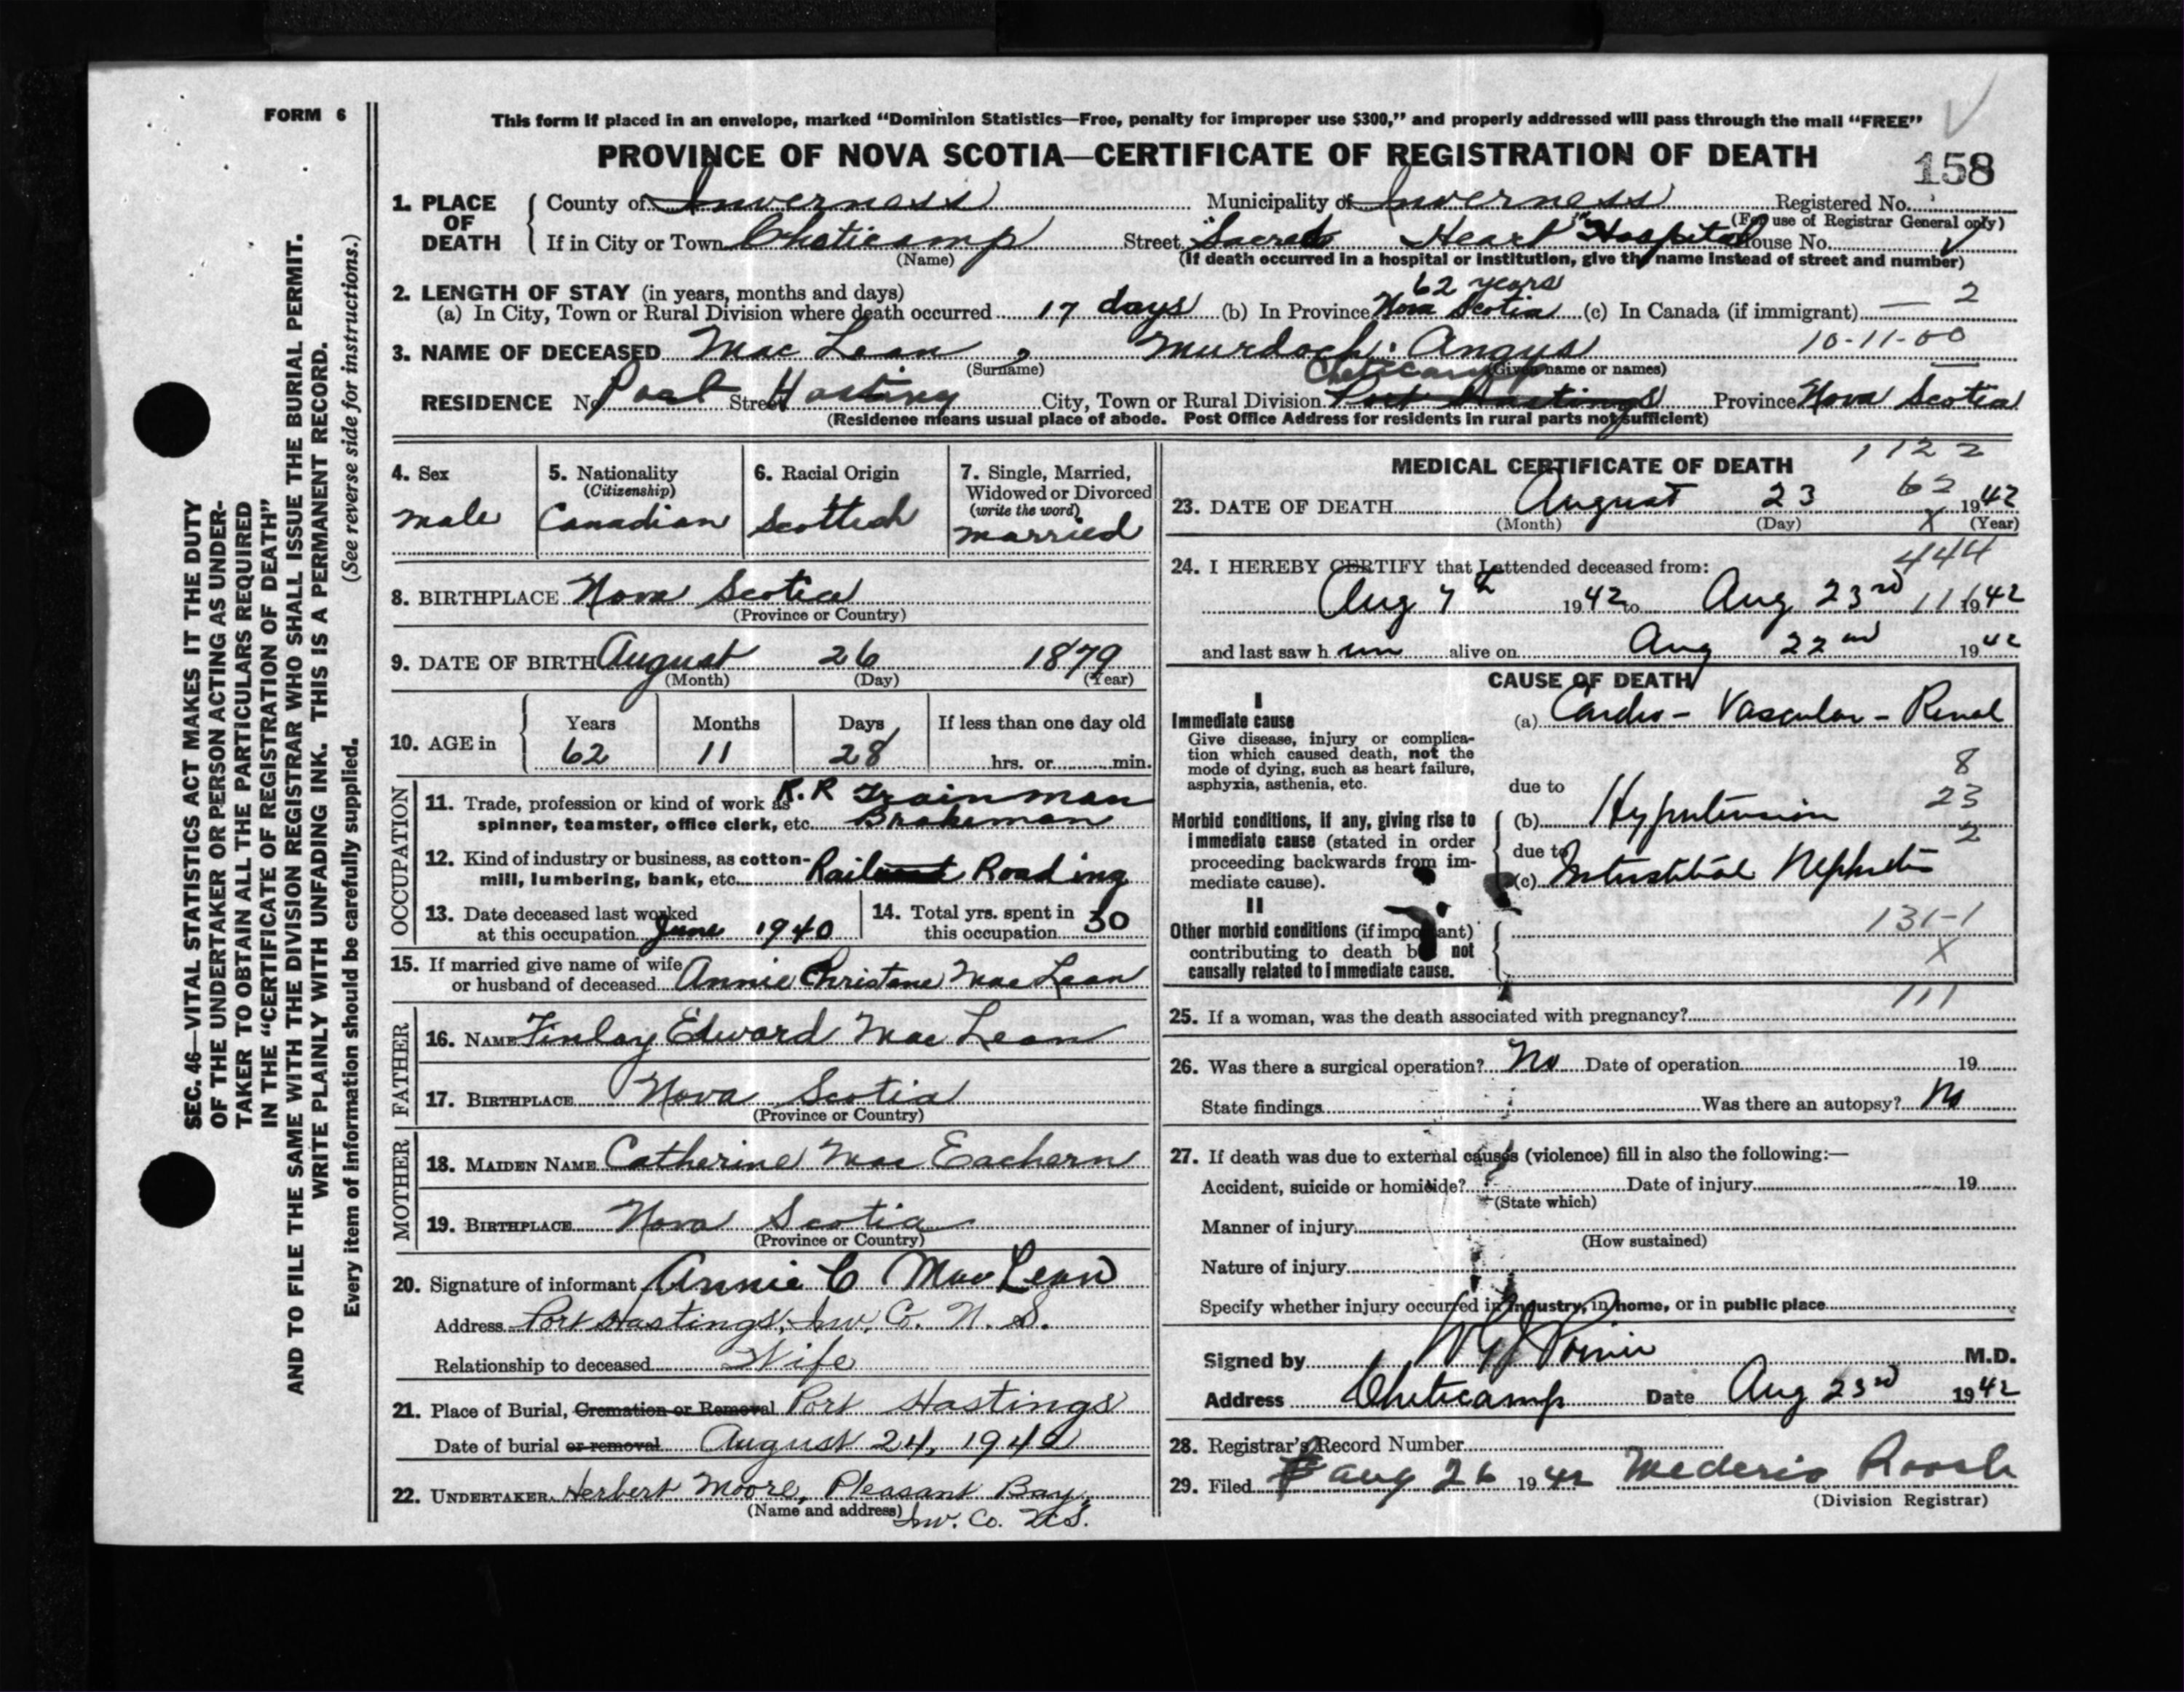 FORM 6
This form if placed in an envelope, marked “Dominion Statistics—Free, penalty for improper use $300,” and properly addressed will pass through the mail “FREE”
PROVINCE OF NOVA SCOTIA—CERTIFICATE OF REGISTRATION OF DEATH
158
1. PLACE OF DEATH
County of Inverness Municipality of Inverness Registered No.
(For use of Registrar General only)
If in City or Town Cheticamp Street Sacred Heart Hospital House No.
(Name) (If death occurred in a hospital or institution, give the name instead of street and number)
2. LENGTH OF STAY (in years, months and days) 62 years
(a) In City, Town or Rural Division where death occurred 17 days (b) In Province Nova Scotia (c) In Canada (if immigrant) — 2
3. NAME OF DECEASED Mac Lean, Murdoch Angus 10-11-00
(Surname) (Given name or names)
Cheticamp
RESIDENCE No. Port Street Hasting City, Town or Rural Division Port Hastings Province Nova Scotia
(Residence means usual place of abode. Post Office Address for residents in rural parts not sufficient)
4. Sex
male
5. Nationality
(Citizenship)
Canadian
6. Racial Origin
Scottish
7. Single, Married,
Widowed or Divorced
(write the word)
married
8. BIRTHPLACE Nova Scotia
(Province or Country)
9. DATE OF BIRTH August 26 1879
(Month) (Day) (Year)
10. AGE in
Years Months Days If less than one day old
62 11 28 hrs. or min.
OCCUPATION
11. Trade, profession or kind of work as R.R Trainman
spinner, teamster, office clerk, etc. Brakeman
12. Kind of industry or business, as cotton-
mill, lumbering, bank, etc. Rail Roading
13. Date deceased last worked
at this occupation June 1940
14. Total yrs. spent in
this occupation 30
15. If married give name of wife
or husband of deceased Annie Christane Mac Lean
FATHER
16. NAME Finlay Edward Mac Lean
17. BIRTHPLACE Nova Scotia
(Province or Country)
MOTHER
18. MAIDEN NAME Catherine Mac Eachern
19. BIRTHPLACE Nova Scotia
(Province or Country)
20. Signature of informant Annie C Mac Lean
Address Port Hastings, Inv. Co. N. S.
Relationship to deceased Wife
21. Place of Burial, Cremation or Removal Port Hastings
Date of burial or removal August 24, 1942
22. UNDERTAKER Herbert Moore, Pleasant Bay,
(Name and address) Inv. Co. N.S.
MEDICAL CERTIFICATE OF DEATH
1122
62
23. DATE OF DEATH August 23 1942
(Month) (Day) X (Year)
444
24. I HEREBY CERTIFY that I attended deceased from:
Aug 7th 1942 to Aug 23rd 111 1942
and last saw h im alive on Aug 22nd 1942
CAUSE OF DEATH
I
Immediate cause
Give disease, injury or complica-
tion which caused death, not the
mode of dying, such as heart failure,
asphyxia, asthenia, etc.
(a) Cardio - Vascular - Renal
8
due to
23
Morbid conditions, if any, giving rise to
immediate cause (stated in order
proceeding backwards from im-
mediate cause).
(b) Hypertension
2
due to
(c) Interstitial Nephritis
II
Other morbid conditions (if important)
contributing to death but not
causally related to immediate cause.
131-1
X
111
25. If a woman, was the death associated with pregnancy?
26. Was there a surgical operation? No Date of operation 19
State findings Was there an autopsy? No
27. If death was due to external causes (violence) fill in also the following:—
Accident, suicide or homicide? Date of injury 19
(State which)
Manner of injury
(How sustained)
Nature of injury
Specify whether injury occurred in industry, in home, or in public place
Signed by M.D.
Address Cheticamp Date Aug 23rd 1942
28. Registrar's Record Number
29. Filed Aug 26 1942
(Division Registrar)
SEC. 46—VITAL STATISTICS ACT MAKES IT THE DUTY
OF THE UNDERTAKER OR PERSON ACTING AS UNDER-
TAKER TO OBTAIN ALL THE PARTICULARS REQUIRED
IN THE “CERTIFICATE OF REGISTRATION OF DEATH”
AND TO FILE THE SAME WITH THE DIVISION REGISTRAR WHO SHALL ISSUE THE BURIAL PERMIT.
WRITE PLAINLY WITH UNFADING INK. THIS IS A PERMANENT RECORD.
Every item of information should be carefully supplied. (See reverse side for instructions.)